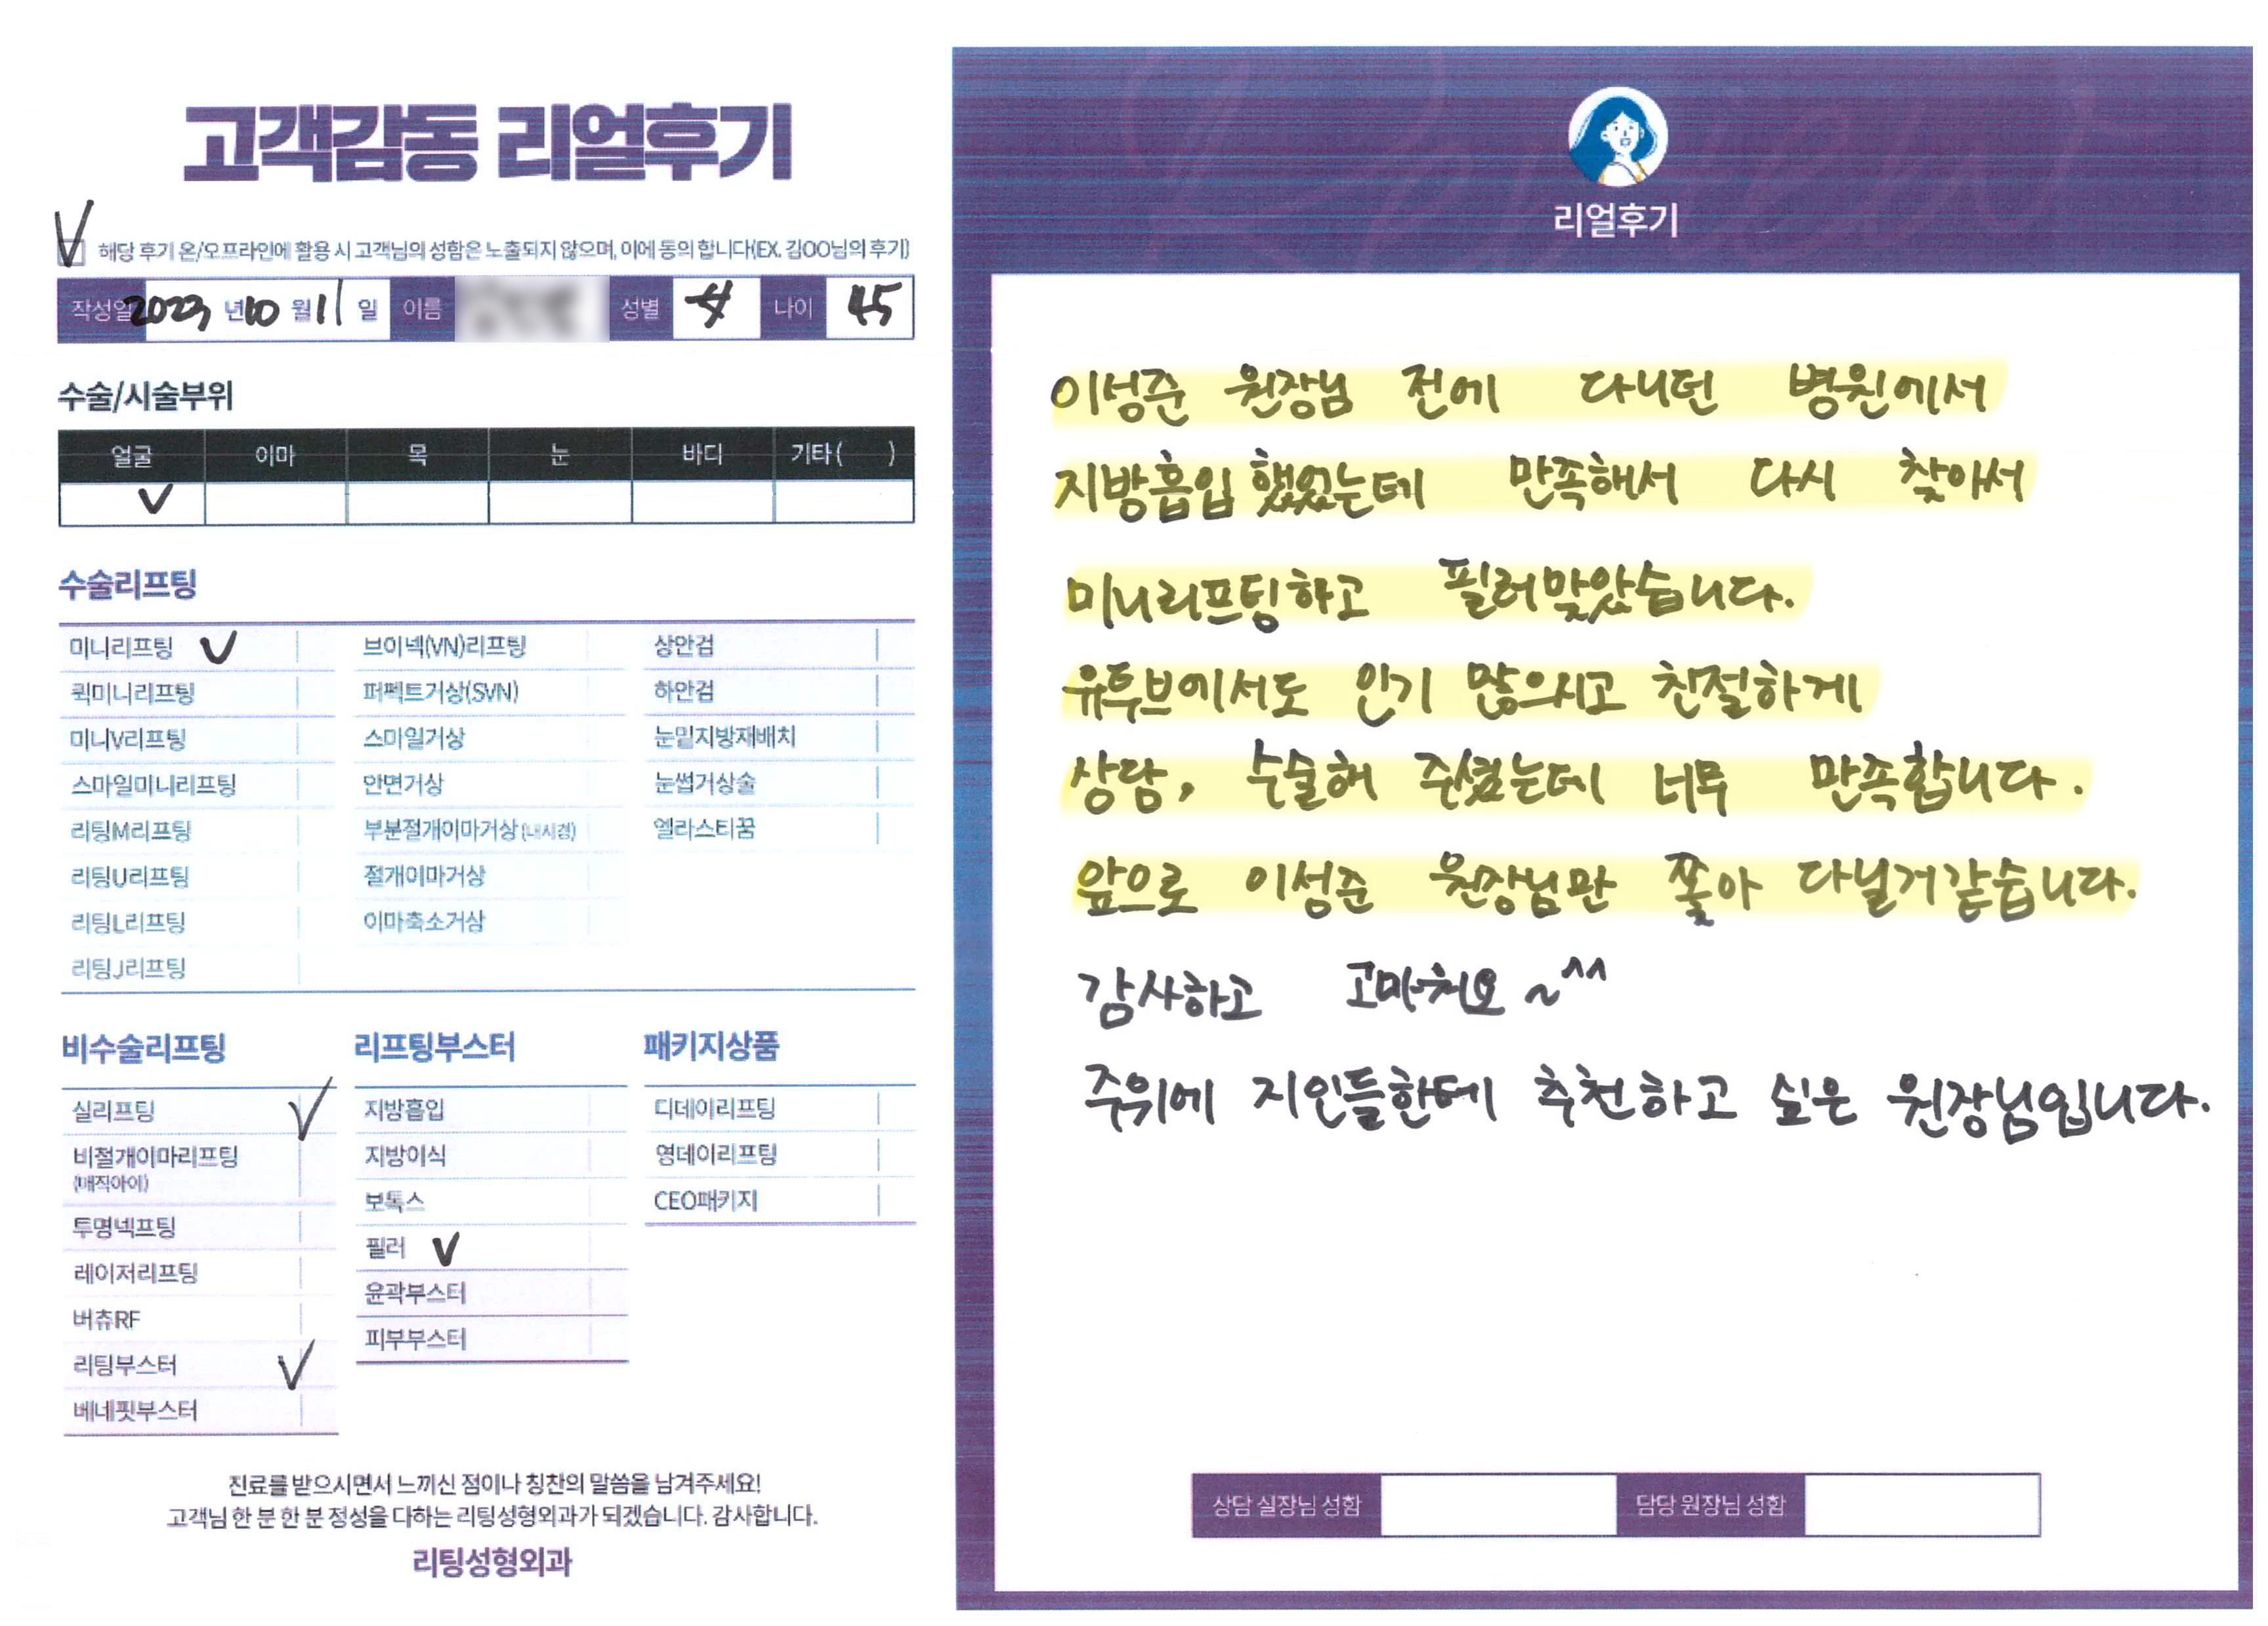 고객감동 리얼후기
해당 후기 온/오프라인에 활용 시 고객님의 성함은 노출되지 않으며, 이에 동의 합니다(EX. 김OO님의 후기)
작성일 2023 년 10 월 11 일 이름 성별 나이 45
수술/시술부위
얼굴 이마 목 눈 바디 기타 ( )
수술리프팅
미니리프팅 브이넥(VN)리프팅 상안검
퀵미니리프팅 퍼펙트거상(SVN) 하안검
미니V리프팅 스마일거상 눈밑지방재배치
스마일미니리프팅 안면거상 눈썹거상술
리팅M리프팅 부분절개이마거상 (내시경) 엘라스티꿈
리팅U리프팅 절개이마거상
리팅L리프팅 이마축소거상
리팅J리프팅
비수술리프팅 리프팅부스터 패키지상품
실리프팅 지방흡입 디데이리프팅
비절개이마리프팅 지방이식 영데이리프팅
(매직아이)
보톡스 CEO패키지
투명넥프팅 필러
레이저리프팅 윤곽부스터
버츄RF 피부부스터
리팅부스터
베네핏부스터
진료를 받으시면서 느끼신 점이나 칭찬의 말씀을 남겨주세요!
고객님 한 분 한 분 정성을 다하는 리팅성형외과가 되겠습니다. 감사합니다.
리팅성형외과
리얼후기
이성준 원장님 전에 다니던 병원에서
지방흡입 했었는데 만족해서 다시 찾아서
미니리프팅하고 필러맞았습니다.
유투브에서도 인기 많으시고 친절하게
상담, 수술해 주셨는데 너무 만족합니다.
앞으로 이성준 원장님만 쫓아 다닐거같습니다.
감사하고 고마워요 ~^^
주위에 지인들한테 추천하고 싶은 원장님입니다.
상담 실장님 성함 담당 원장님 성함